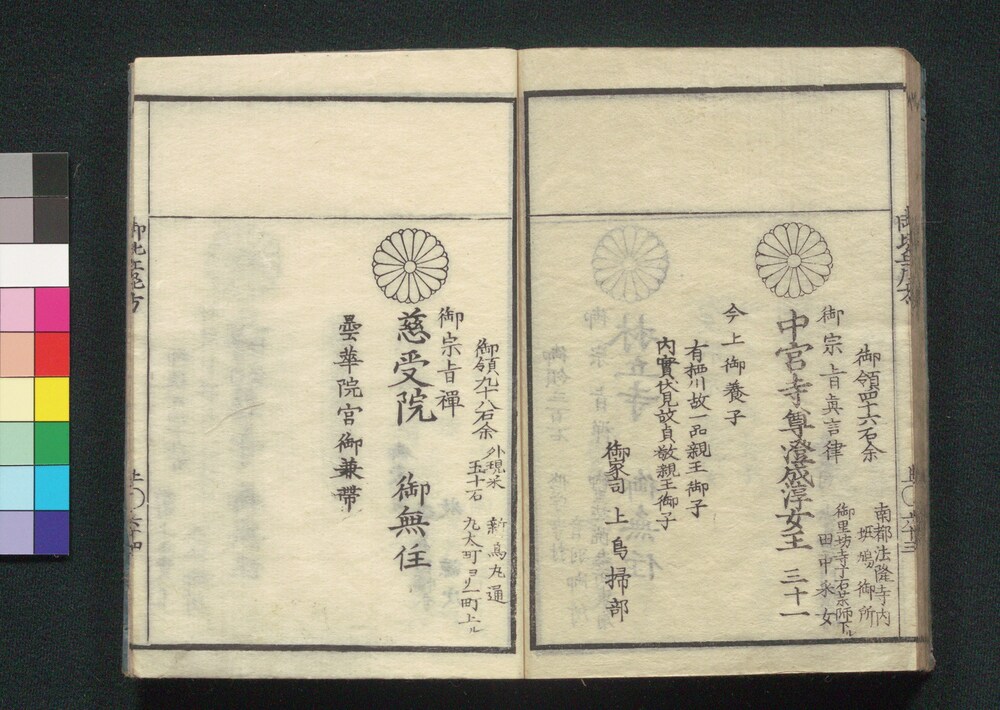 御領四十六石余
南都法隆寺内
斑鳩御所
御宗旨真言律
御里坊寺丁石薬師下ル
田中采女
中宮寺尊澄成淳女王 三十一
今上御養子
有栖川故一品親王御子
内實伏見故貞敬親王御子
御家司 上島掃部
御領九十八石余 外現米
五十石
新烏丸通
丸太町ヨリ一町上ル
御宗旨禅
慈受院 御無住
曇華院宮御兼帯